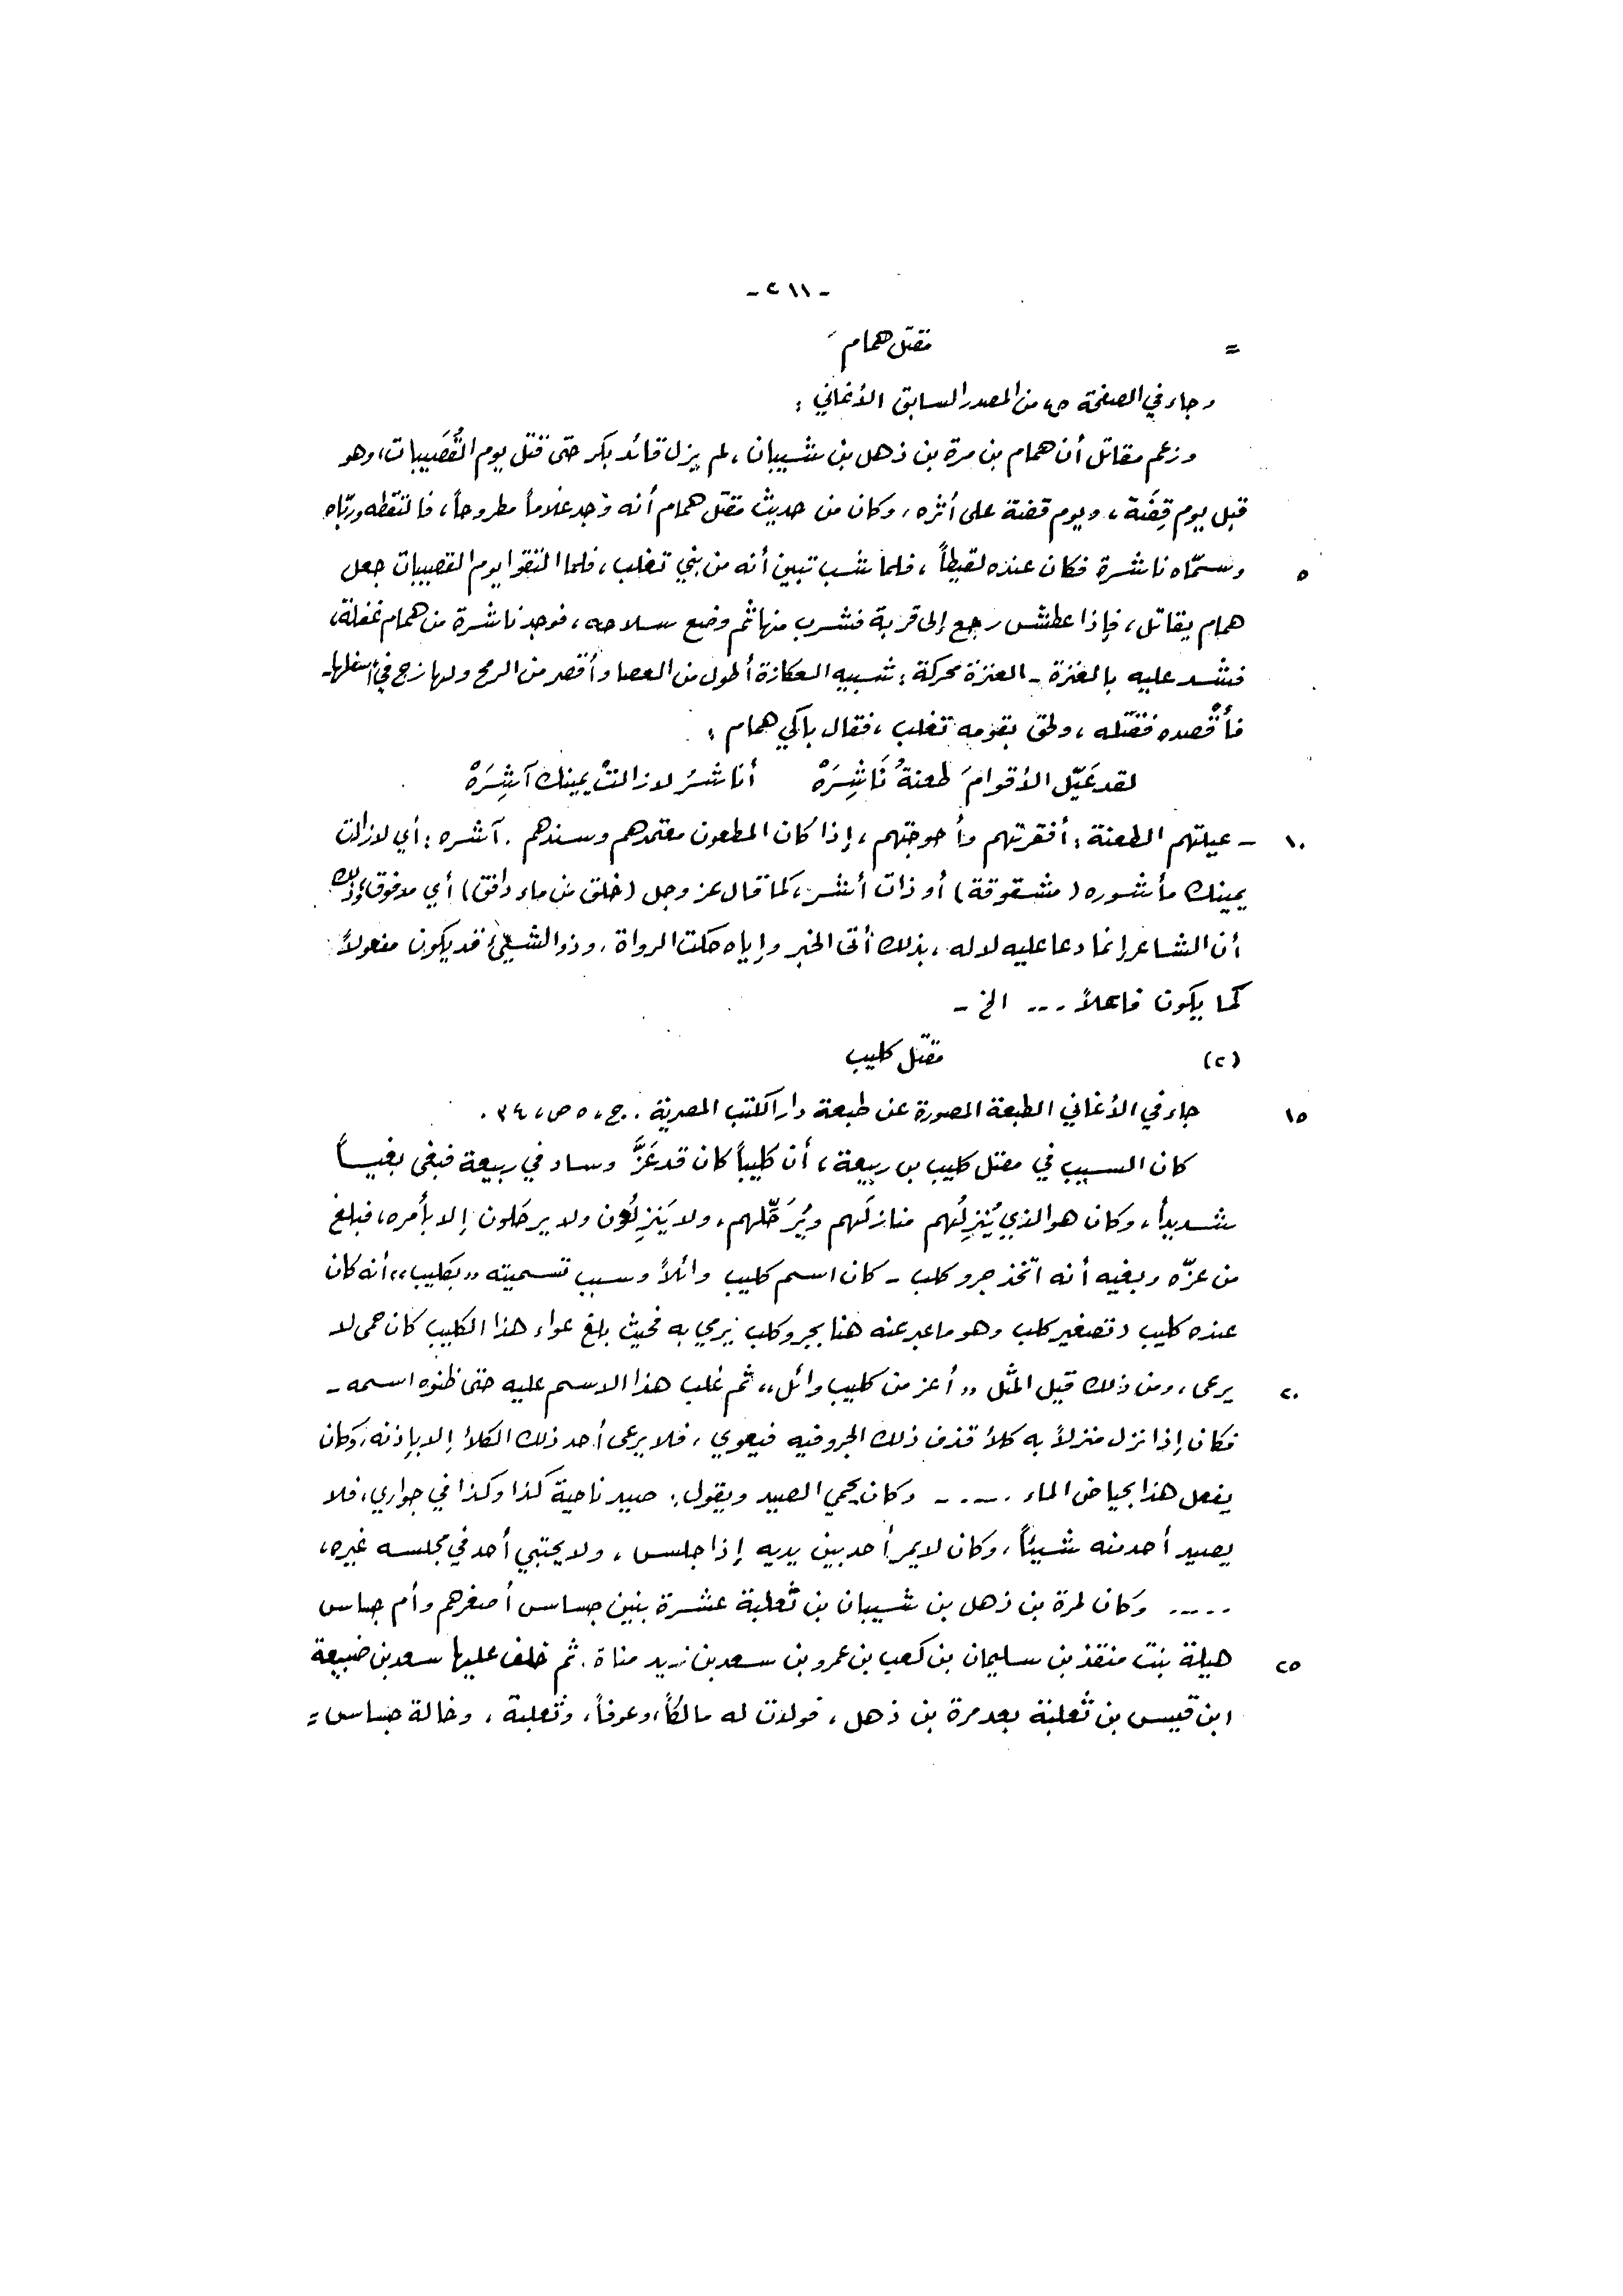 - ٢١١ -
= مقتل همام
وجاء في الصفحة من المصدر السابق الأغاني :
وزعم مقاتل أن همام بن مرة بن ذهل بن شيبان ، لم يزل قائد بكر حتى قتل يوم القُصَيبات ، وهو
قبل يوم قِضَة ، ويوم قضة على أثره ، وكان من حديث مقتل همام أنه وجد غلاماً مطروحاً ، فالتقطه وربّاه
٥ وسمّاه ناشرة فكان عنده لقيطاً ، فلما شب تبين أنه من بني تغلب ، فلما التقوا يوم القصيبات جعل
همام يقاتل ، فإذا عطش رجع إلى قربة فشرب منها ثم وضع سلاحه ، فوجد ناشرة من همام غفلة ،
فشد عليه بالعنزة - العنزة محركة : شبيه العكازة أطول من العصا وأقصر من الرمح ولها زج في أسفلها -
فأقصده فقتله ، ولحق بقومه تغلب ، فقال باكي همام :
لقد عَيّل الأقوامَ طعنةُ نَاشِرَهْ أناشرُ لا زالتْ يمينك آشِرَهْ
١٠ - عيلتهم الطعنة : أفقرتهم وأحوجتهم ، إذا كان المطعون معتمدهم وسندهم . آشره : أي لا زالت
يمينك مأشوره (مشقوقة) أو ذات أشر ، كما قال عز وجل (خلق من ماء دافق) أي مدفوق وذلك
أن الشاعر إنما دعا عليه لا له ، بذلك أتى الخبر وإياه حكت الرواة ، وذو الشيئ قد يكون مفعولاً
كما يكون فاعلاً ... الخ -
(٢) مقتل كليب
١٥ جاء في الأغاني الطبعة المصورة عن طبعة دار الكتب المصرية . ج ، ٥ ص ، ٣٤ .
كان السبب في مقتل كليب بن ربيعة ، أن كليباً كان قد عَزَّ وساد في ربيعة فبغى بغيـاً
شديداً ، وكان هو الذي يُنزِلُهم منازلَهم ويُرَحِّلهم ، ولا يَنزِلُون ولا يرحلون إلا بأمره ، فبلغ
من عزّه وبغيه أنه اتخذ جرو كلب - كان اسم كليب وائلاً وسبب تسميته ,, بكليب ،، أنه كان
عنده كليب ( تصغير كلب وهو ما عبر عنه هنا بجرو كلب يرمي به فحيث بلغ عواء هذا الكليب كان حمى لا
٢٠ يرعى ، ومن ذلك قيل المثل ,, أعز من كليب وائل ،، ثم غلب هذا الاسم عليه حتى ظنوه اسمه -
فكان إذا نزل منزلاً به كلأ قذف ذلك الجرو فيه فيعوي ، فلا يرعى أحد ذلك الكلأ إلا بإذنه ، وكان
يفعل هذا بحياض الماء ..... وكان يحمي الصيد ويقول : صيد ناحية كذا وكذا في جواري ، فلا
يصيد أحد منه شيئاً ، وكان لا يمر أحد بين يديه إذا جلس ، ولا يحتبي أحد في مجلسه غيره ،
..... وكان لمرة بن ذهل بن شيبان بن ثعلبة عشرة بنين جساس أصغرهم وأم جساس
٢٥ هيلة بنت منقذ بن سليمان بن كعب بن عمرو بن سعد بن زيد مناة . ثم خلف عليها سعد بن ضبيعة
ابن قيس بن ثعلبة بعد مرة بن ذهل ، فولدت له مالكاً ، وعوفاً ، وثعلبة ، وخالة جساس =